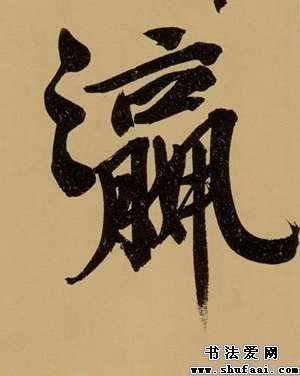 瀛
书法爱网
www.shufaai.com